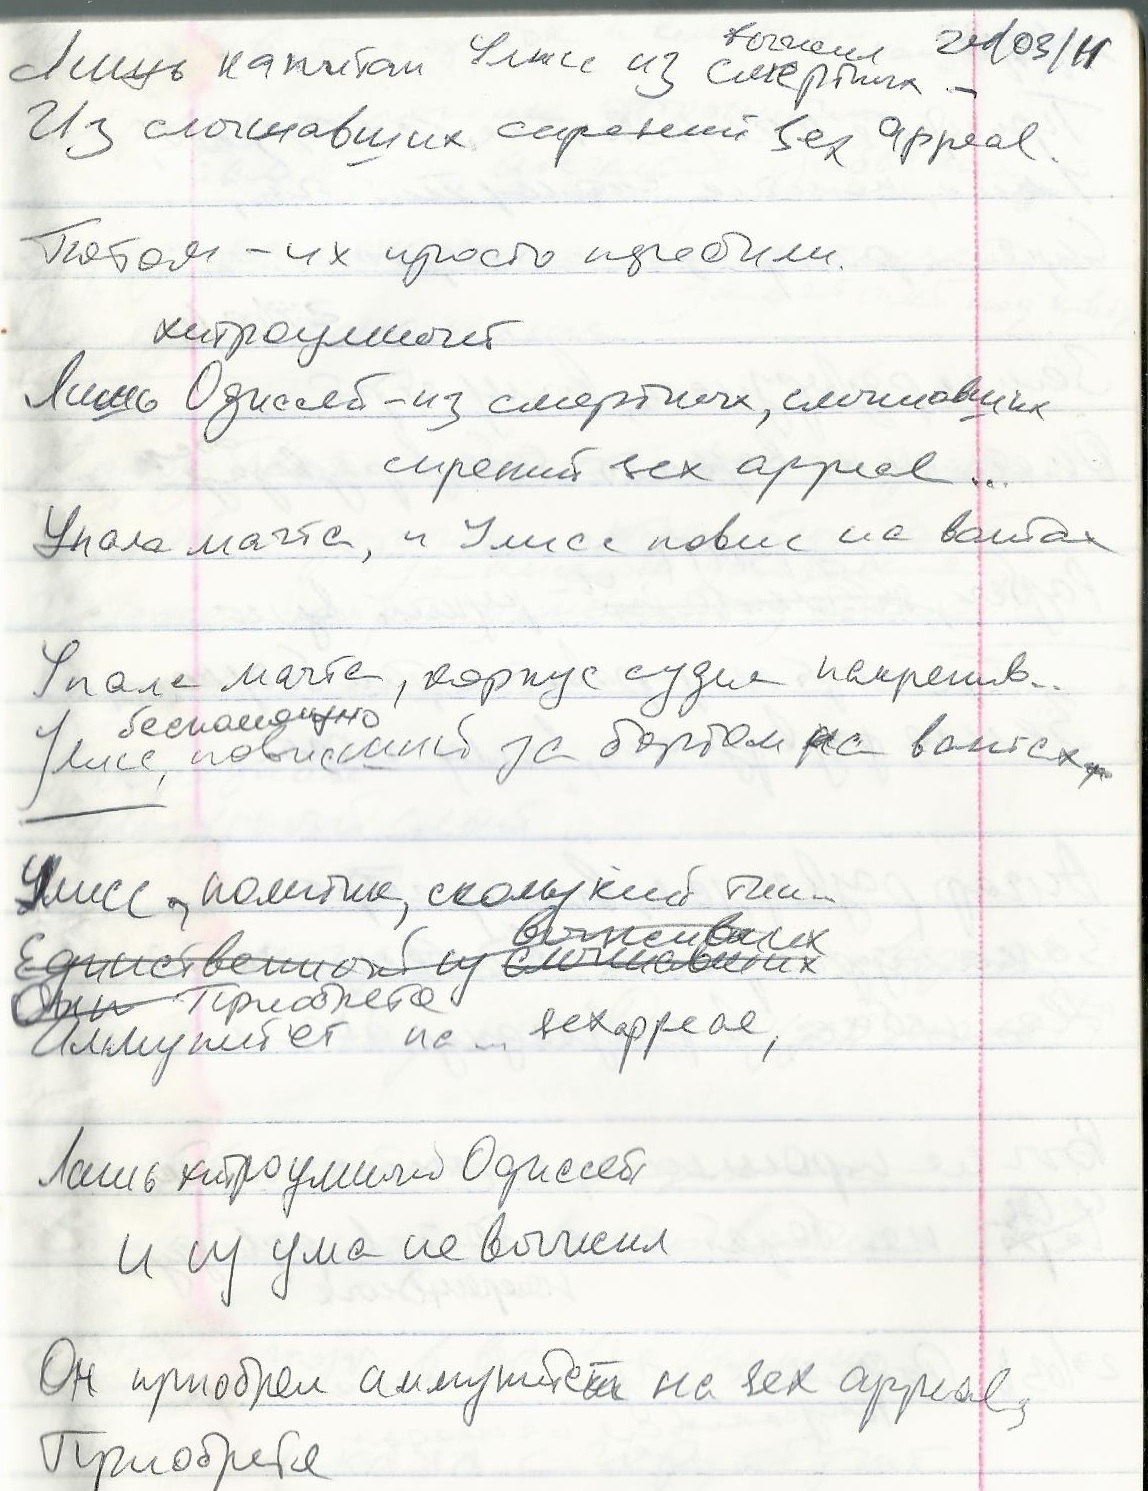 выжил 24/03/11
Лишь капитан Улисс из смертных –
Из слышавших сирений sex appeal.
Потом – их просто истребили.
хитроумный
Лишь Одиссей – из смертных, слышавших
сирений sex appeal...
Упала мачта, и Улисс повис на вантах
Упала мачта, корпус судна накренив..
беспомощно
Улисс, повисший за бортом на вантах,
Улисс, политик, скользкий тип..
выживших
Единственный из слышавших
Он Приобретя
Иммунитет на... sex appeal,
Лишь хитроумный Одиссей
и из ума не выжил
Он приобрел иммунитет на sex appeal,
Приобретя